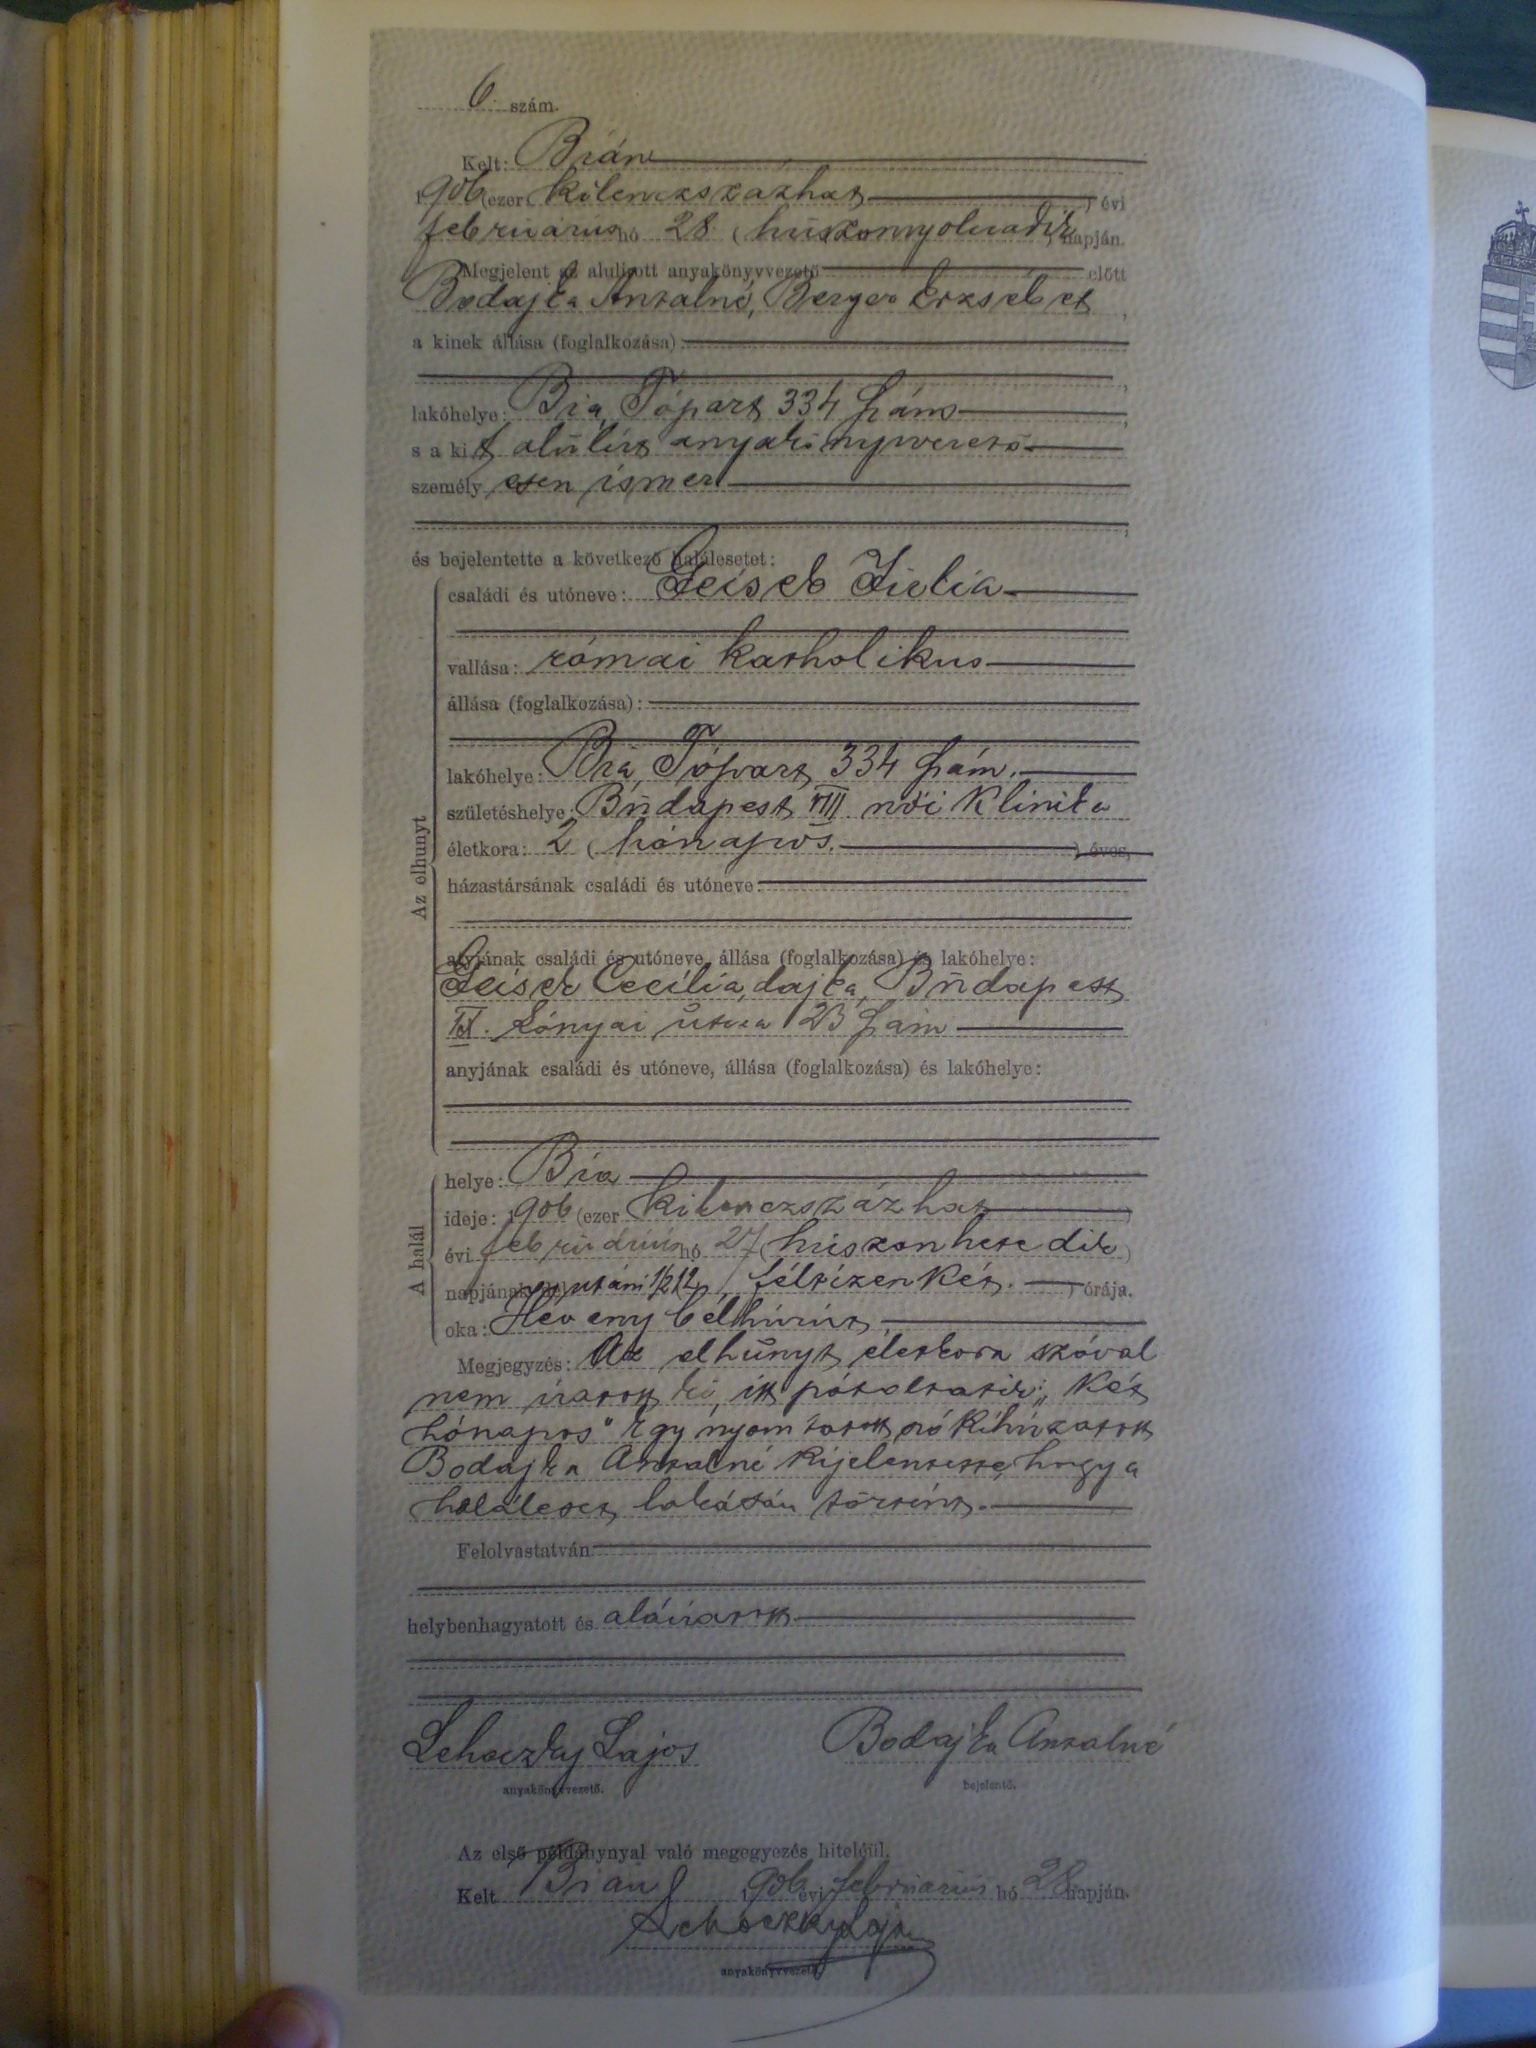 6. szám.
Kelt: Bián
1906 (ezer kilenczszázhat) évi
február​ius hó 28 (huszonnyolcadik) napján.
Megjelent az alulirott anyakönyvvezető előtt
Bodajka Antalné, Berger Erzsébet,
a kinek állása (foglalkozása):
lakóhelye: Bia, Tópart 334 szám
s a kit alulírt anyakönyvvezető
személyesen ismer
és bejelentette a következő halálesetet:
Az elhunyt
családi és utóneve: Geisek Júlia
vallása: római katholikus
állása (foglalkozása):
lakóhelye: Bia, Tópart 334 szám.
születéshelye: Budapest VIII női klinika
életkora: 2 (hónapos.) éves,
házastársának családi és utóneve:
atyjának családi és utóneve, állása (foglalkozása) és lakóhelye:
Geisek Cecília, dajka, Budapest
IX. Lónyai utca 23 szám
anyjának családi és utóneve, állása (foglalkozása) és lakóhelye:
A halál
helye: Bia
ideje: 1906 (ezer kilenczszázhat)
évi február​ius hó 27 (huszonhetedik)
napjának délutáni 1/2 12 (féltizenkét.) órája.
oka: Heveny bélhurut,
Megjegyzés: Az elhunyt életkora szóval
nem íratott ki, itt pótoltatik: "két
hónapos" Egy nyomtatott szó kihúzatott
Bodajka Antalné kijelentette, hogy a
haláleset lakásán történt.
Felolvastatván
helybenhagyatott és aláíratott
Lehoczky Lajos Bodajka Antalné
anyakönyvvezető. bejelentő.
Az első példánynyal való megegyezés hiteléül.
Kelt Bián 1906 évi február​ius hó 28 napján.
Lehoczky Lajos
anyakönyvvezető.